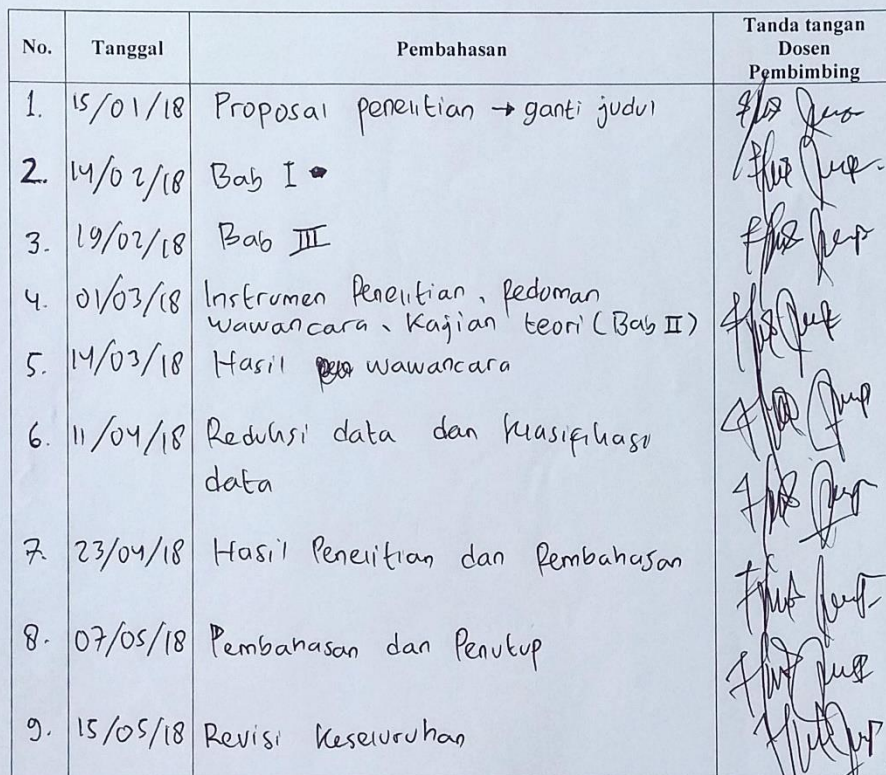 No. Tanggal Pembahasan Tanda tangan
Dosen
Pembimbing
1. 15/01/18 Proposal penelitian → ganti judul
2. 14/02/18 Bab I
3. 19/02/18 Bab III
4. 01/03/18 Instrumen Penelitian, Pedoman
wawancara, Kajian teori (Bab II)
5. 14/03/18 Hasil wawancara
6. 11/04/18 Reduksi data dan klasifikasi
data
7. 23/04/18 Hasil Penelitian dan Pembahasan
8. 07/05/18 Pembahasan dan Penutup
9. 15/05/18 Revisi Keseluruhan